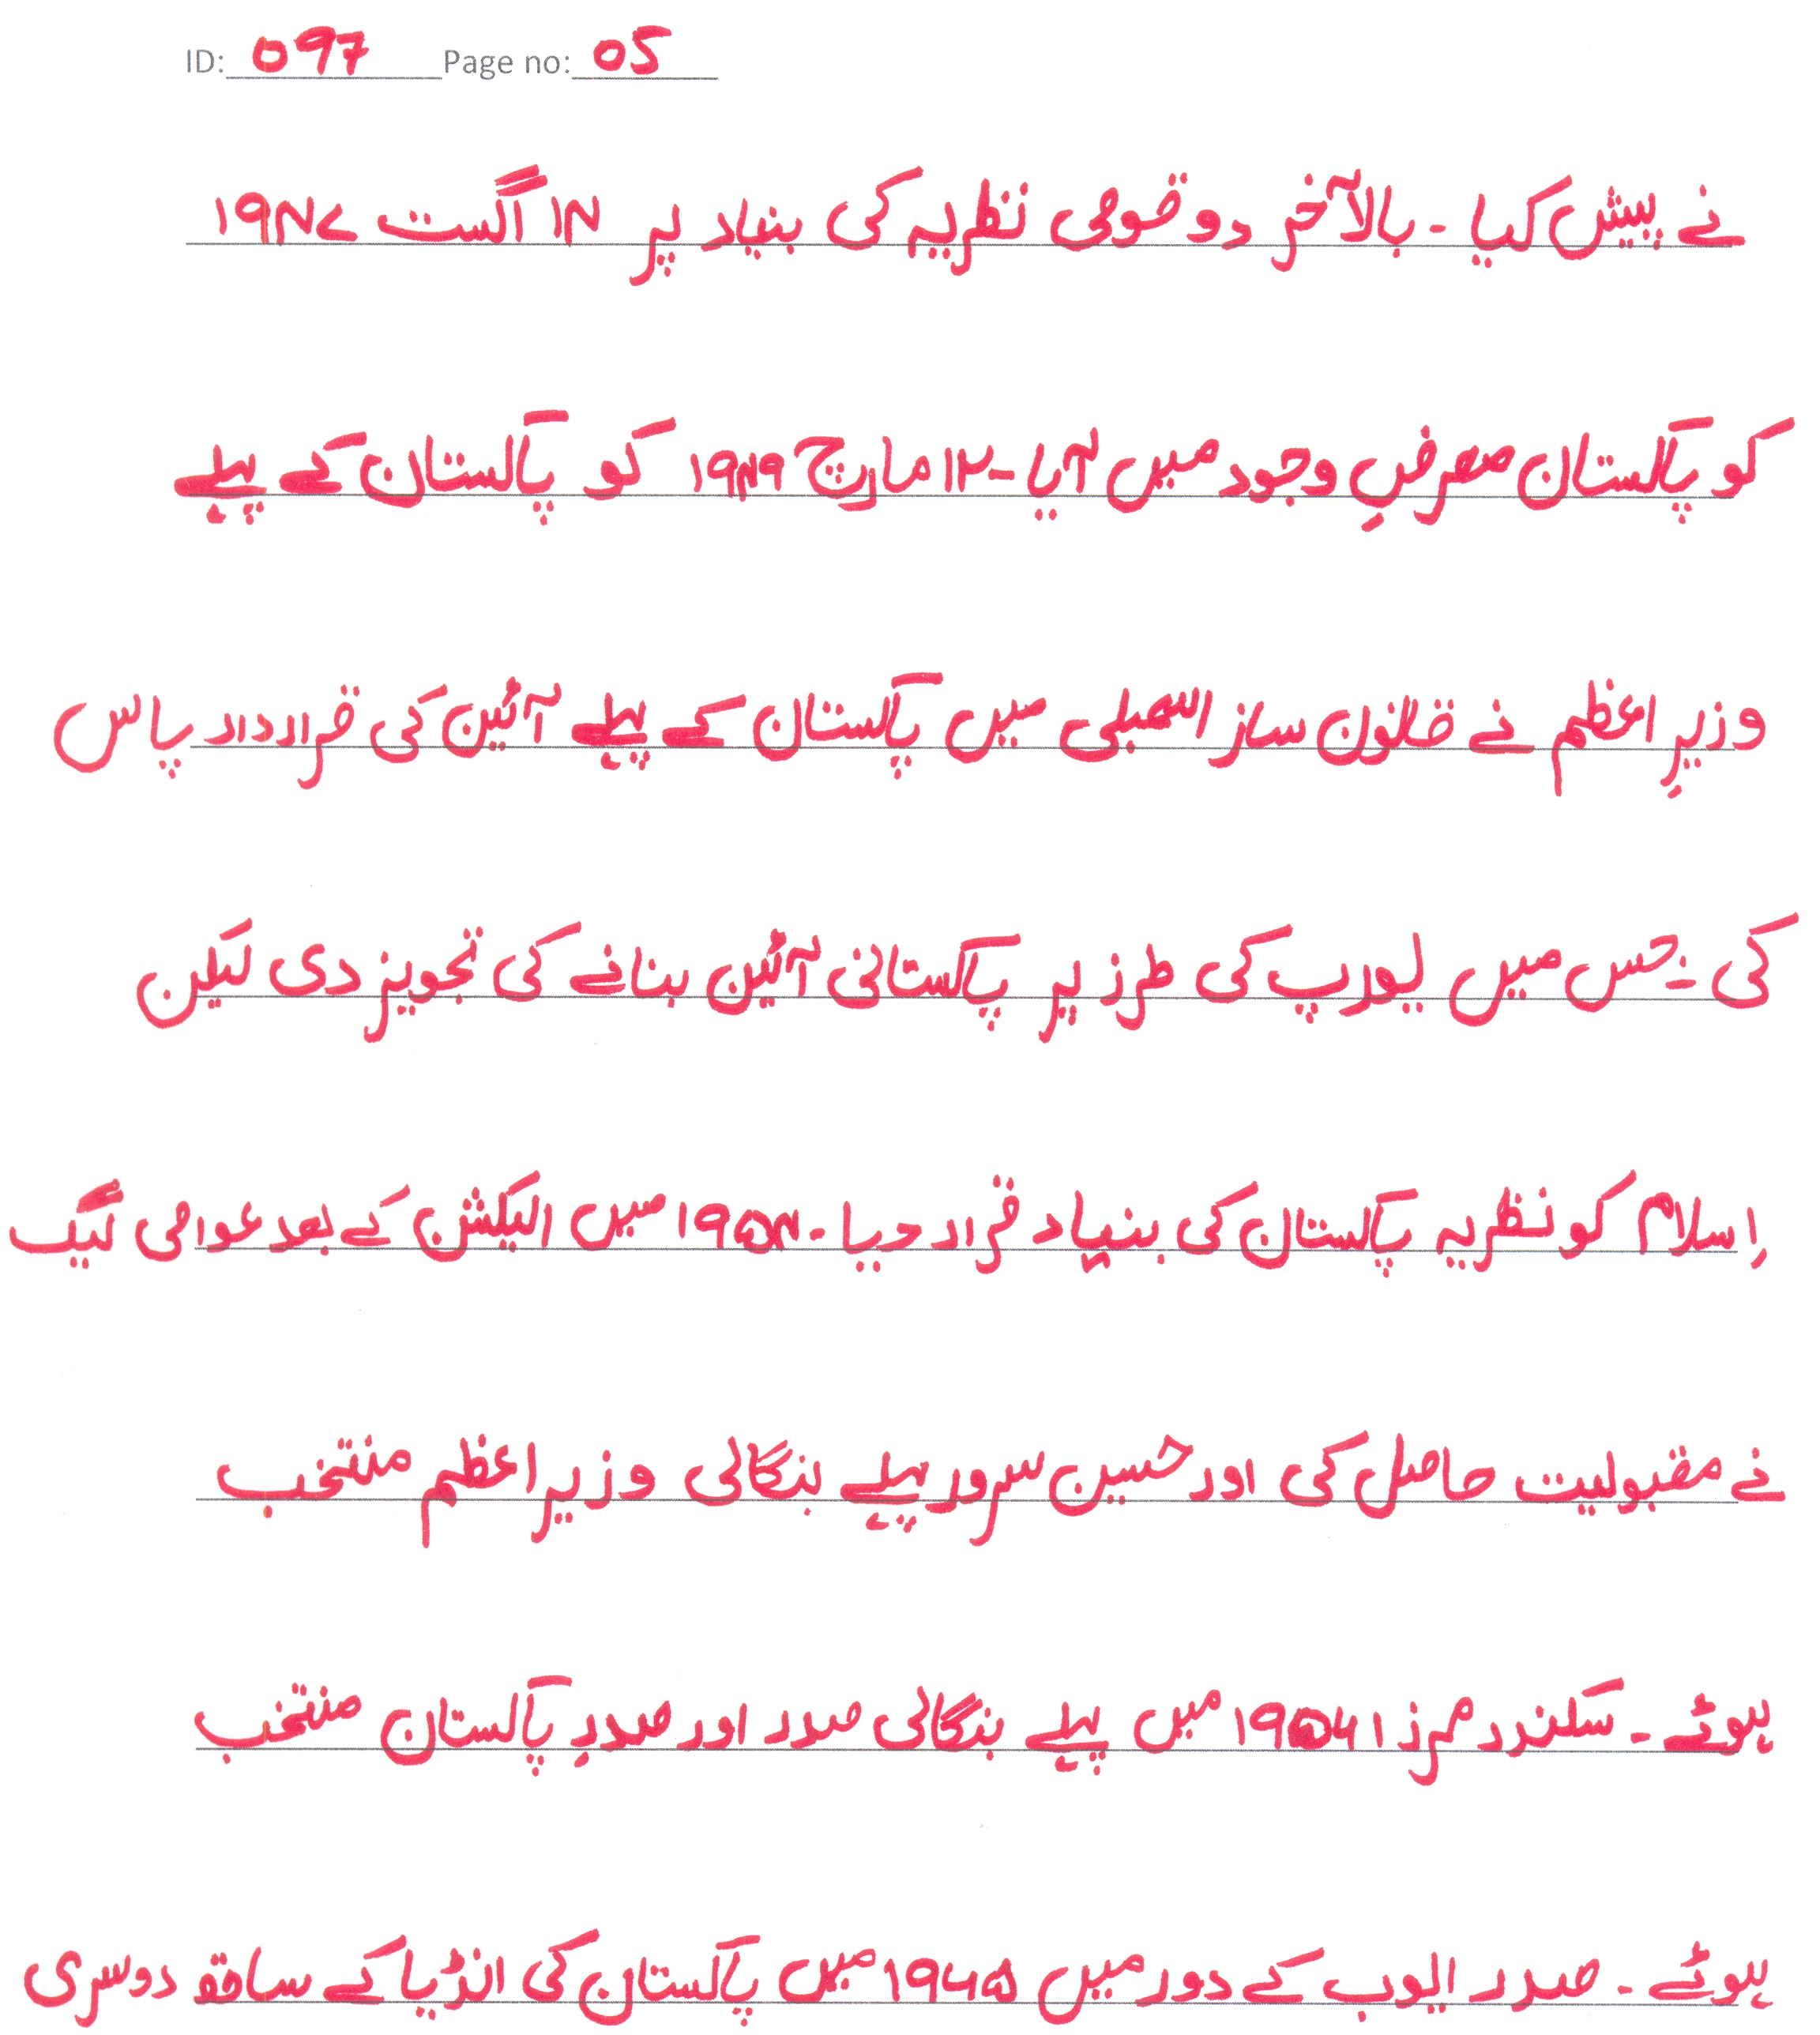 ID: 097 Page no: 05
نے پیش کیا ۔ بالآخر دو قومی نظریہ کی بنیاد پر ۱۴ اگست ۱۹۴۷
کو پاکستان معرضِ وجود میں آیا ۔ ۱۲ مارچ ۱۹۴۹ کو پاکستان کے پہلے
وزیرِ اعظم نے قانون ساز اسمبلی میں پاکستان کے پہلے آئین کی قرارداد پاس
کی ۔ جس میں یورپ کی طرز پر پاکستانی آئین بنانے کی تجویز دی لیکن
اِسلام کو نظریہ پاکستان کی بنیاد قرار دیا ۔ ۱۹۵۴ میں الیکشن کے بعد عوامی لیگ
نے مقبولیت حاصل کی اور حسین سرور پہلے بنگالی وزیر اعظم منتخب
ہوئے ۔ سکندر مرزا ۱۹۵۶ میں پہلے بنگالی صدر اور صدرِ پاکستان منتخب
ہوئے ۔ صدر ایوب کے دور میں ۱۹۶۵ میں پاکستان کی انڈیا کے ساتھ دوسری